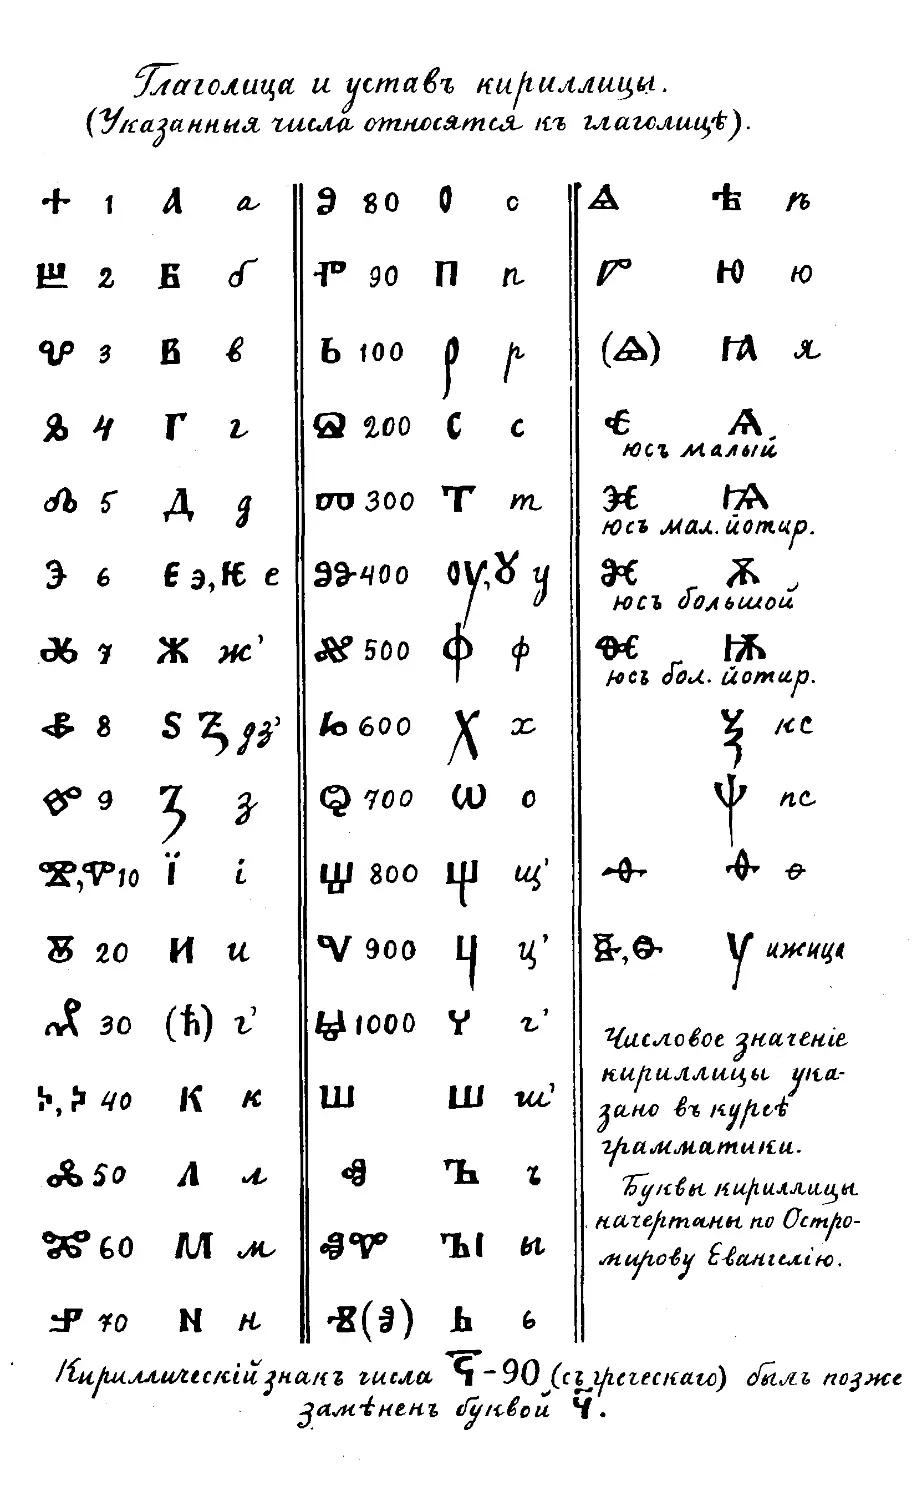 Глаголица и уставъ кириллицы.
(Указанныя числа относятся къ глаголицѣ).
Ⰰ 1 А а
Ⰱ 2 Б б
Ⰲ 3 В в
Ⰳ 4 Г г
Ⰴ 5 Д д
Ⰵ 6 Є э, Ѥ е
Ⰶ 7 Ж ж'
Ⰷ 8 Ѕ Ꙁ дз'
Ⰸ 9 З з
Ⰺ, Ⰹ 10 Ї і
Ⰻ 20 И и
Ⰼ 30 (Ћ) г'
Ⰽ, Ⰽ 40 К к
Ⰾ 50 Л л
Ⰿ 60 М м
Ⱀ 70 N н
Ⱁ 80 О о
Ⱂ 90 П п
Ⱃ 100 Р р
Ⱄ 200 С с
Ⱅ 300 Т т
Ⱆ 400 ОУ, Ꙋ у
Ⱇ 500 Ф ф
Ⱈ 600 Х х
Ⱉ 700 Ѡ о
Ⱋ 800 Щ щ'
Ⱌ 900 Ц ц'
Ⱍ 1000 Ч ч'
Ⱎ Ш ш'
Ⱏ Ъ ъ
ⰟⰉ ЪІ ы
Ⱐ Ь ь
Ⱑ Ѣ ѣ
Ⱓ Ю ю
(Ⱑ) Ꙗ я
Ⱔ Ѧ
юсъ малый
Ⱗ Ѩ
юсъ мал. йотир.
Ⱘ Ѫ
юсъ большой
Ⱙ Ѭ
юсъ бол. йотир.
Ѯ кс
Ѱ пс
Ⱚ Ѳ ѳ
Ⱛ, Ѵ ижица
Числовое значеніе
кириллицы ука-
зано въ курсѣ
грамматики.
Буквы кириллицы
начертаны по Остро-
мирову Евангелію.
Кириллическій знакъ числа Ҁ - 90 (съ греческаго) былъ позже
замѣненъ буквой Ч.